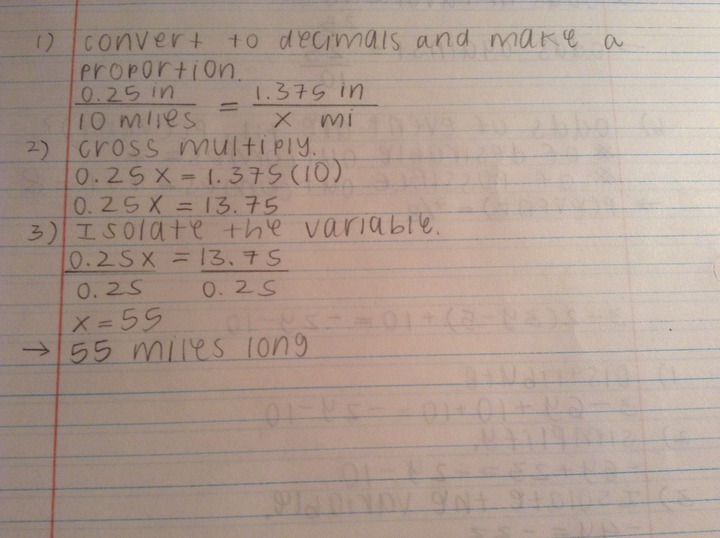 1) convert to decimals and make a
proportion.
0.25 in = 1.375 in
10 miles x mi
2) cross multiply.
0.25x = 1.375(10)
0.25x = 13.75
3) Isolate the variable.
0.25x = 13.75
0.25 0.25
x = 55
→ 55 miles long